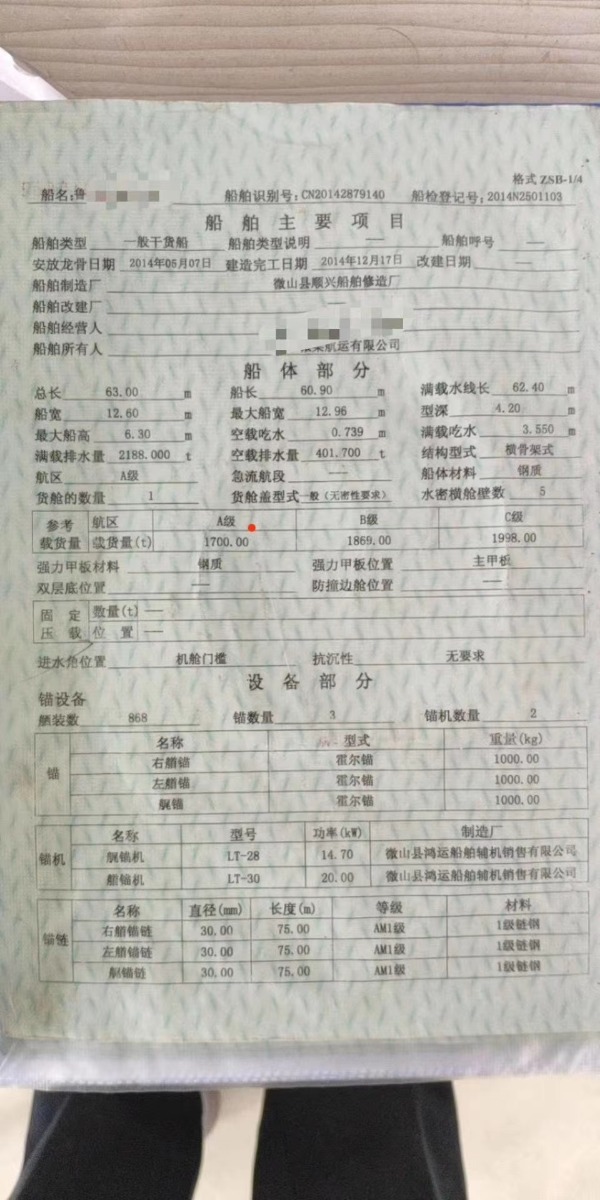 格式 ZSB-1/4
船名:鲁 船舶识别号:CN20142879140 船检登记号:2014N2501103
船舶主要项目
船舶类型 一般干货船 船舶类型说明 —— 船舶呼号 ——
安放龙骨日期 2014年05月07日 建造完工日期 2014年12月17日 改建日期 ——
船舶制造厂 微山县顺兴船舶修造厂
船舶改建厂 ——
船舶经营人
船舶所有人 航运有限公司
船体部分
总长 63.00 m 船长 60.90 m 满载水线长 62.40 m
船宽 12.60 m 最大船宽 12.96 m 型深 4.20 m
最大船高 6.30 m 空载吃水 0.739 m 满载吃水 3.550 m
满载排水量 2188.000 t 空载排水量 401.700 t 结构型式 横骨架式
航区 A级 急流航段 —— 船体材料 钢质
货舱的数量 1 货舱盖型式 一般（无密性要求） 水密横舱壁数 5
参考 航区 A级 B级 C级
载货量 载货量(t) 1700.00 1869.00 1998.00
强力甲板材料 钢质 强力甲板位置 主甲板
双层底位置 —— 防撞边舱位置 ——
固定 数量(t) ——
压载 位置 ——
进水角位置 机舱门槛 抗沉性 无要求
设备部分
锚设备
舾装数 868 锚数量 3 锚机数量 2
名称 型式 重量(kg)
右艏锚 霍尔锚 1000.00
锚 左艏锚 霍尔锚 1000.00
艉锚 霍尔锚 1000.00
名称 型号 功率(kW) 制造厂
锚机 艉锚机 LT-28 14.70 微山县鸿运船舶辅机销售有限公司
艏锚机 LT-30 20.00 微山县鸿运船舶辅机销售有限公司
名称 直径(mm) 长度(m) 等级 材料
右艏锚链 30.00 75.00 AM1级 1级链钢
锚链 左艏锚链 30.00 75.00 AM1级 1级链钢
艉锚链 30.00 75.00 AM1级 1级链钢